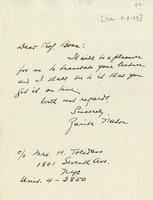 [ca. 8-8-39]
Dear Prof. Boas:
It will be a pleasure
for me to translate your lecture
and I shall see to it that you
get it on time.
With best regards,
Sincerely,
c/o Mrs. H. Toledano
1801 Seventh Ave.
NYC
Univ. 4-3850